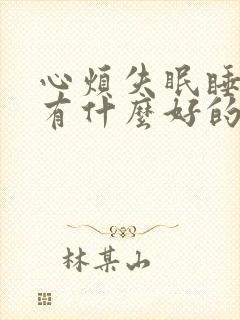 心煩失眠睡
有什麼好的
林某山